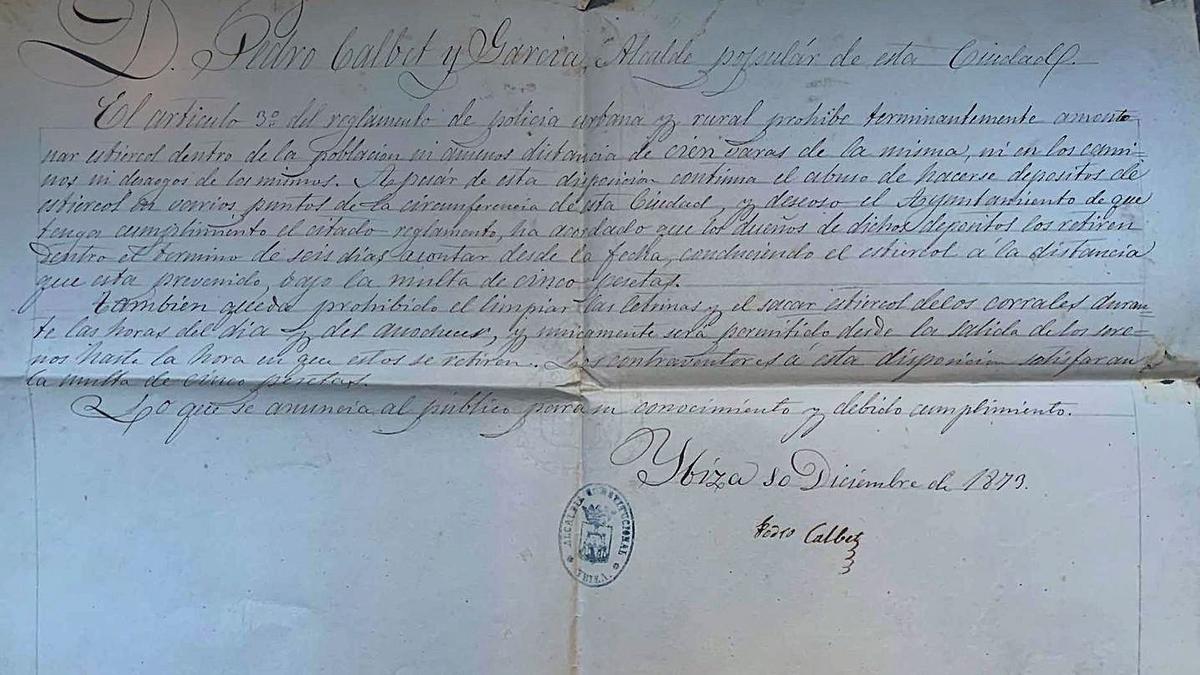 D. Pedro Calbet y Garcia, Alcalde populár de esta Ciudad.
El articulo 3º del reglamento de policia urbana y rural prohibe terminantemente amonto
nar estiercol dentro de la poblacion ni á menos distancia de cien varas de la misma, ni en los cami=
nos ni desagos de los mismos. Apesár de esta disposicion continua el abuso de hacerse depositos de
estiercol en varios puntos de la circunferencia de esta Ciudad, y deseoso el Ayuntamiento de que
tenga cumplimiento el citado reglamento, ha acordado que los dueños de dichos depositos los retiren
dentro el termino de seis dias acontar desde la fecha, conduciendo el estiercol á la distancia
que esta prevenido, bajo la multa de cinco pesetas.
Tambien queda prohibido el limpiar las letrinas y el sacar estiercol de los corrales duran=
te las horas del dia y del anochecer, y unicamente será permitido desde la salida de los sere=
nos hasta la hora en que estos se retiren. Los contraventores á esta disposicion satisfaran
la multa de cinco pesetas.
Lo que se anuncia al público para su conocimiento y debido cumplimiento.
Ybiza 10 Diciembre de 1873.
Pedro Calbet
ALCALDIA CONSTITUCIONAL
IBIZA.